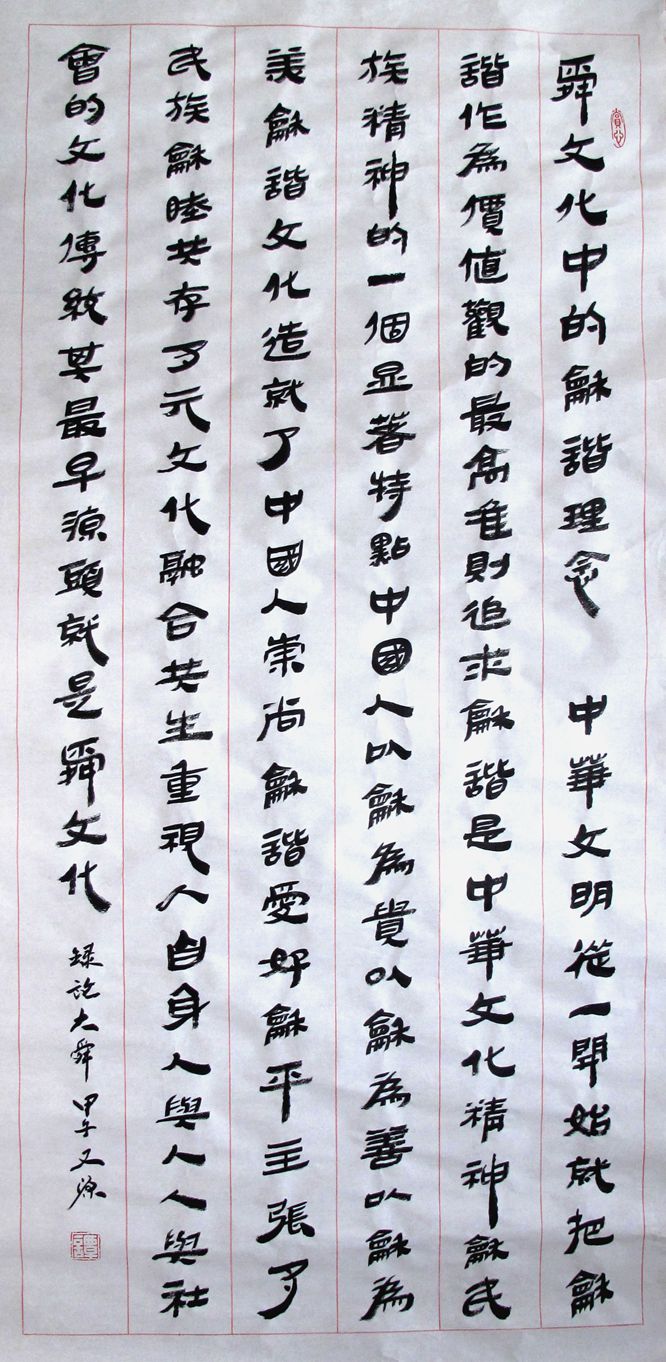 賞心
舜文化中的龢諧理念 中華文明從一開始就把龢
諧作為價值觀的最高准則追求龢諧是中華文化精神龢民
族精神的一個显著特點中國人以龢為貴以龢為善以龢為
美龢諧文化造就了中國人崇尚龢諧愛好龢平主張多
民族龢睦共存多元文化融合共生重視人自身人與人人與社
會的文化傳統其最早源頭就是舜文化
錄說大舜 甲午 又源